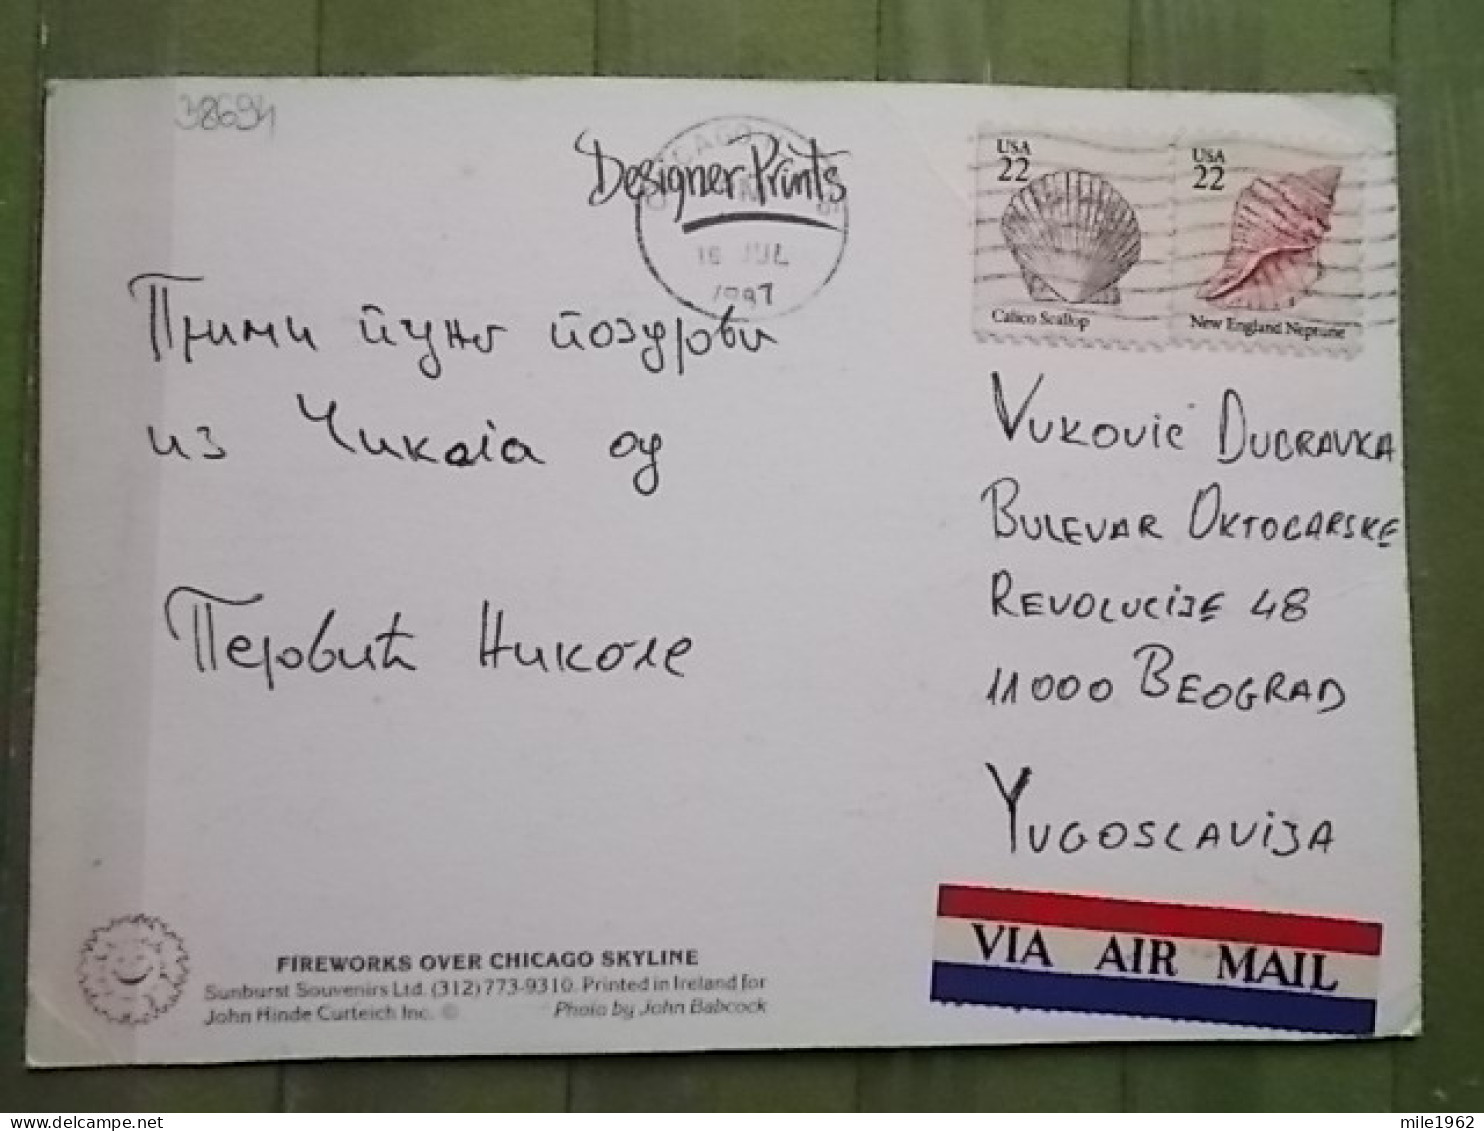 38694
Designer Prints
CHICAGO
16 JUL
USA
22
USA
22
Calico Scallop
New England Neptune
Прими пуно поздрови
из Чикага од
Перовић Николе
VUKOVIĆ DUBRAVKA
BULEVAR OKTOBARSKE
REVOLUCIJE 48
11000 BEOGRAD
YUGOSLAVIJA
VIA AIR MAIL
FIREWORKS OVER CHICAGO SKYLINE
Sunburst Souvenirs Ltd. (312) 773-9310. Printed in Ireland for
John Hinde Curteich Inc. © Photo by John Babcock
mile1962